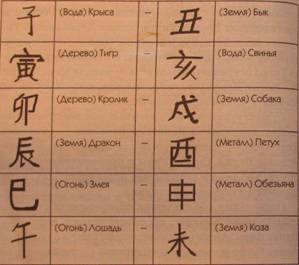 子 (Вода) Крыса – 丑 (Земля) Бык
寅 (Дерево) Тигр – 亥 (Вода) Свинья
卯 (Дерево) Кролик – 戌 (Земля) Собака
辰 (Земля) Дракон – 酉 (Металл) Петух
巳 (Огонь) Змея – 申 (Металл) Обезьяна
午 (Огонь) Лошадь – 未 (Земля) Коза